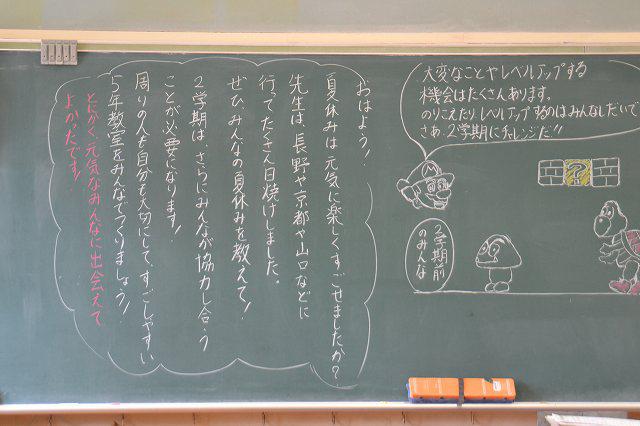 おはよう！
夏休みは元気に楽しくすごせましたか？
先生は、長野や京都や山口などに
行ってたくさん日焼けしました。
ぜひ、みんなの夏休みを教えて！
2学期は、さらにみんなが協力し合う
ことが必要になります！
周りの人も自分も大切にして、すごしやすい
5年教室をみんなでつくりましょう！
とにかく元気なみんなに出会えて
よかったです！
大変なことやレベルアップする
機会はたくさんあります。
のりこえたりレベルアップするのはみんなしだいです
さあ、2学期にチャレンジだ!!
M
?
2学期前
のみんな